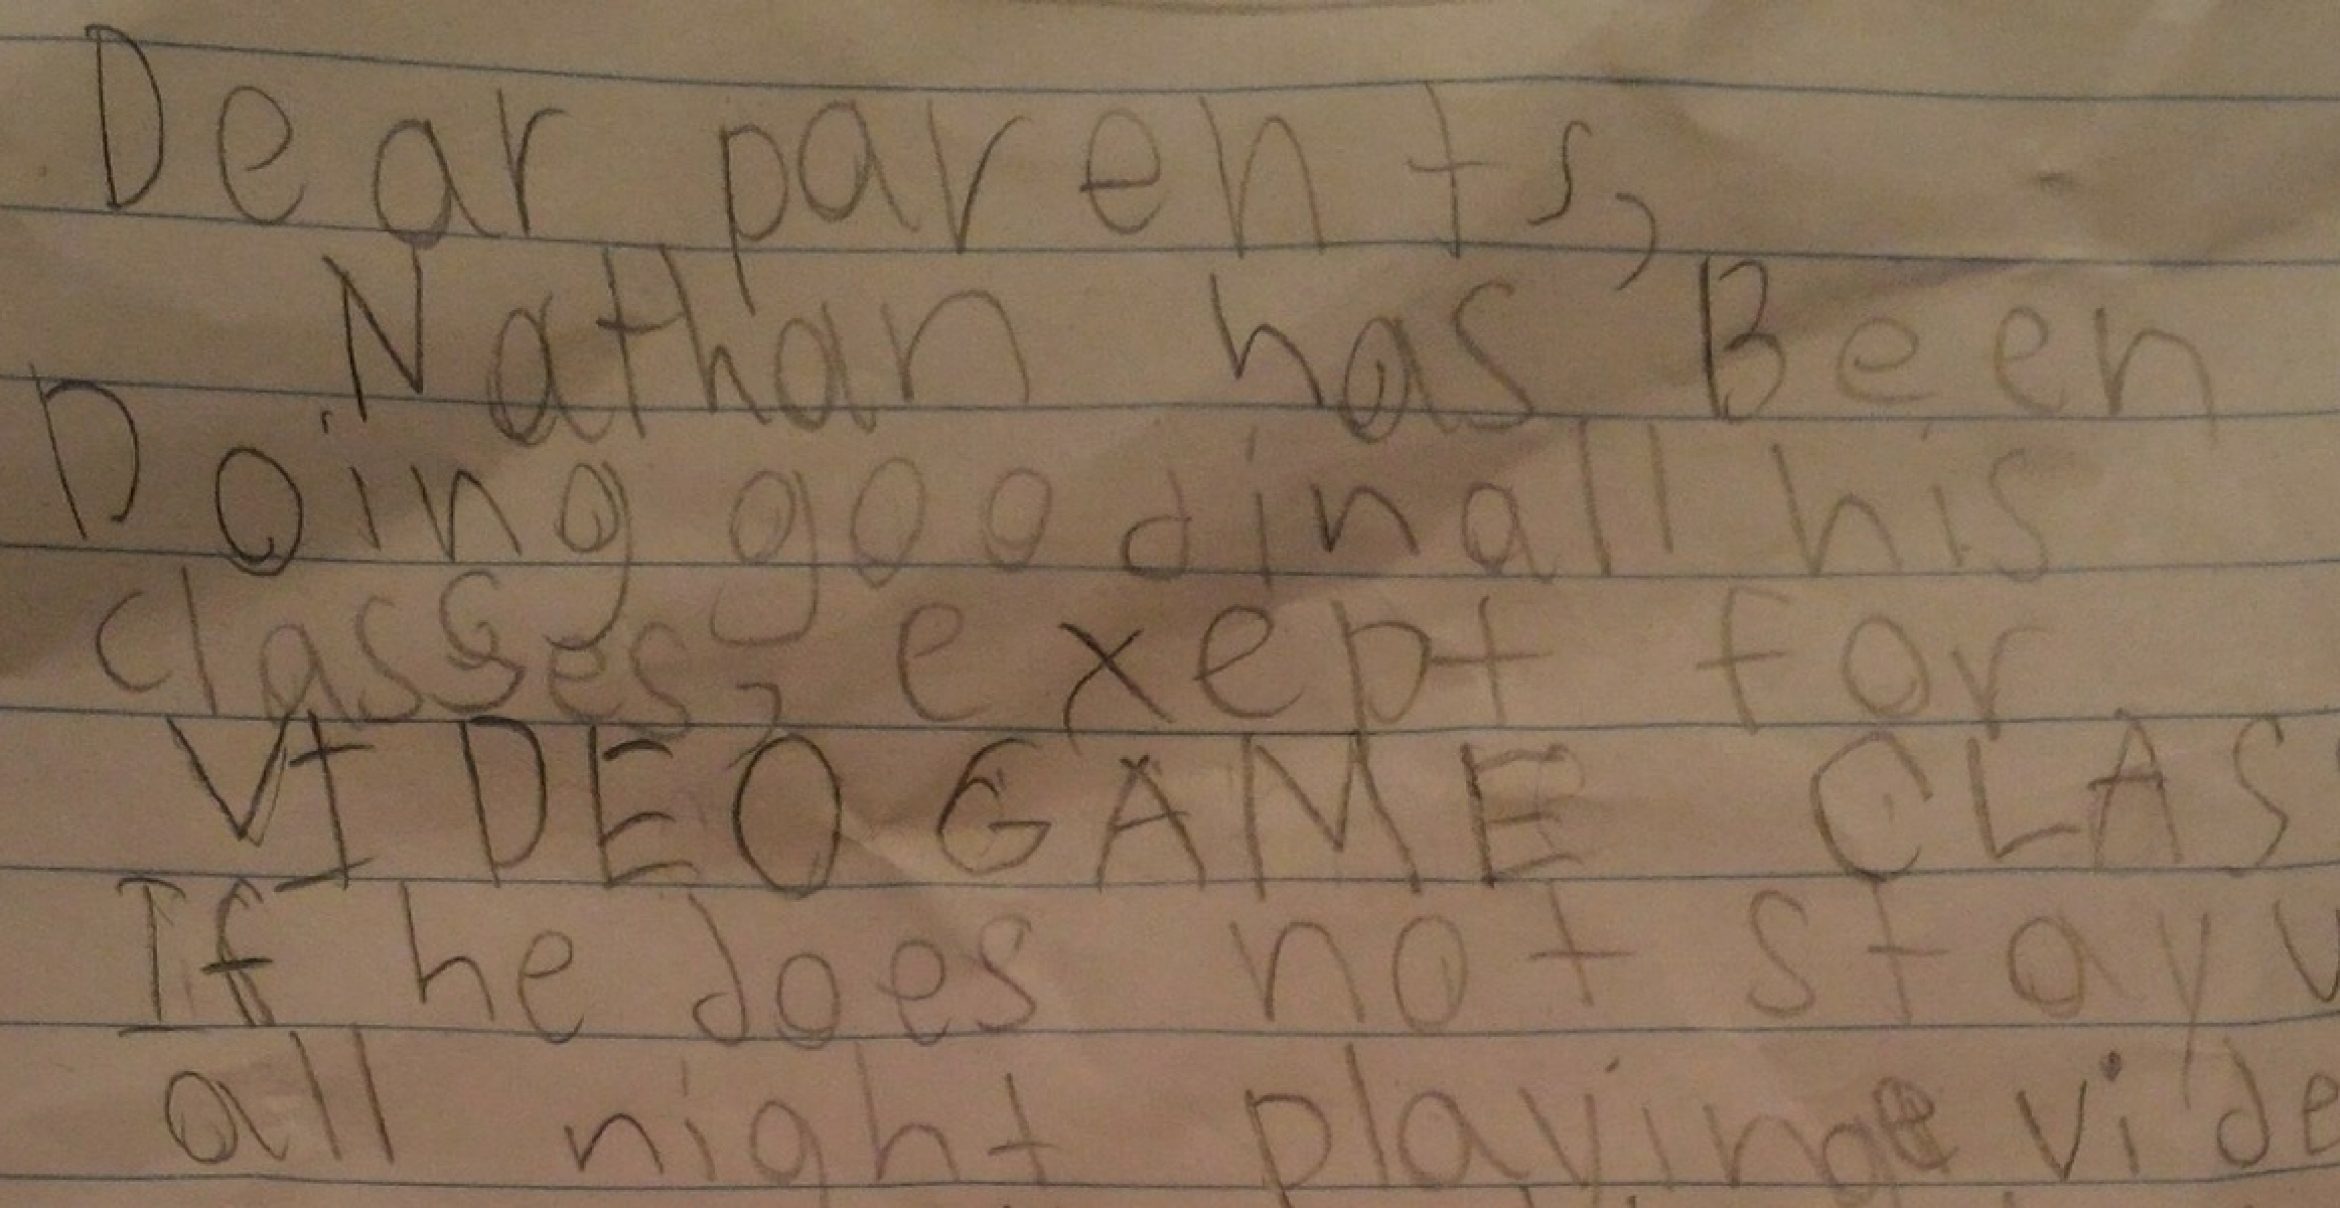 Dear parents,
Nathan has Been
Doing good in all his
classes, exept for
VIDEO GAME CLAS
If he does not stay u
all night playing vide